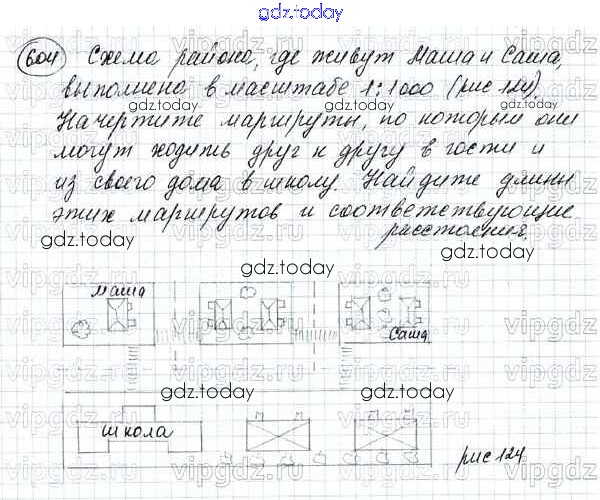 gdz.today
604 Схема района, где живут Маша и Саша,
выполнена в масштабе 1:1000 (рис 124).
Начертите маршруты, по которым они
могут ходить друг к другу в гости и
из своего дома в школу. Найдите длины
этих маршрутов и соответствующие
расстояния.
gdz.today
Маша
Саша
школа
рис 124
vipgdz